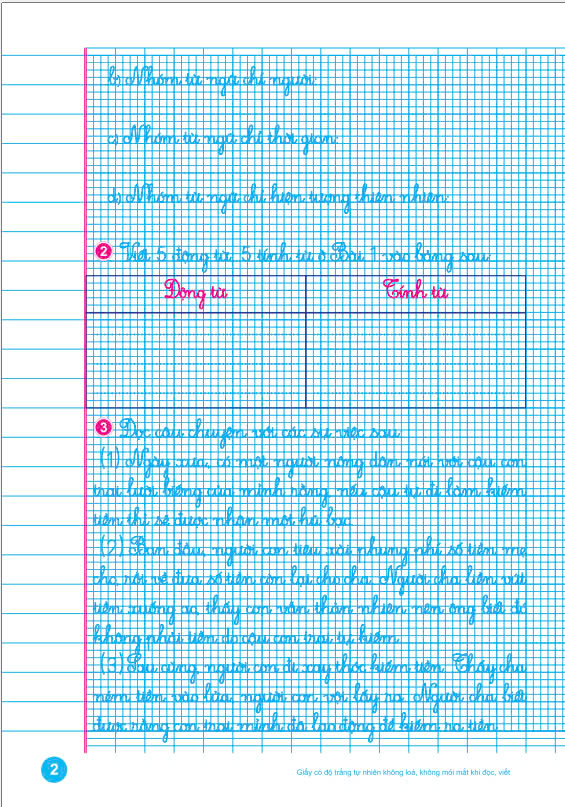 b) Nhóm từ ngữ chỉ người:
c) Nhóm từ ngữ chỉ thời gian:
d) Nhóm từ ngữ chỉ hiện tượng thiên nhiên:
2 Viết 5 động từ, 5 tính từ ở Bài 1 vào bảng sau:
Động từ Tính từ
3 Đọc câu chuyện với các sự việc sau:
(1) Ngày xưa, có một người nông dân nói với cậu con
trai lười biếng của mình rằng nếu cậu tự đi làm kiếm
tiền thì sẽ được nhận một hũ bạc.
(2) Ban đầu, người con tiêu xài phung phí số tiền mẹ
cho, rồi về đưa số tiền còn lại cho cha. Người cha liền vứt
tiền xuống ao, thấy con vẫn thản nhiên nên ông biết đó
không phải tiền do cậu con trai tự kiếm.
(3) Sau cùng, người con đi xay thóc kiếm tiền. Thấy cha
ném tiền vào lửa, người con vội lấy ra. Người cha biết
được rằng con trai mình đã lao động để kiếm ra tiền.
2
Giấy có độ trắng tự nhiên không loá, không mỏi mắt khi đọc, viết